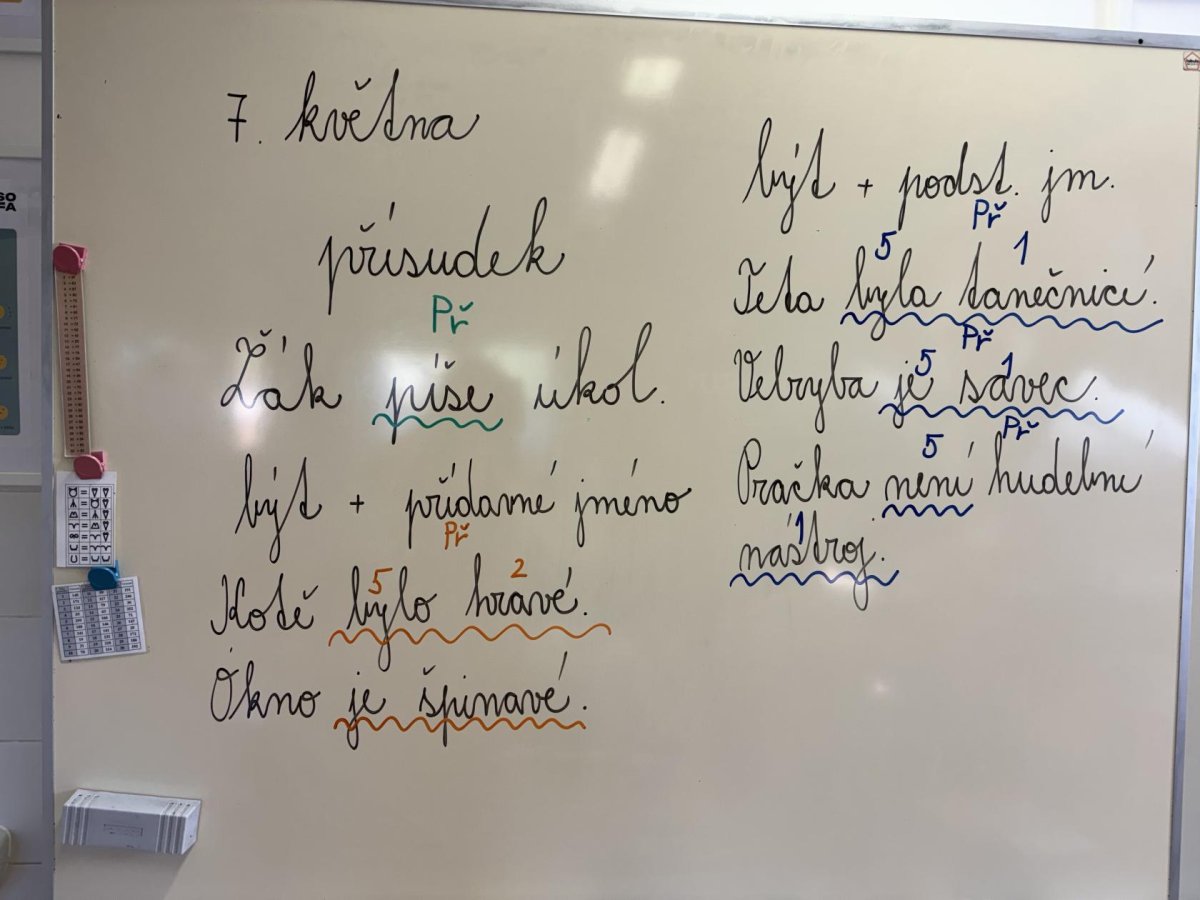 7. května
přísudek
Př
Žák píše úkol.
být + přídavné jméno
Př
5 2
Kotě bylo hravé.
Okno je špinavé.
být + podst. jm.
Př
5 1
Teta byla tanečnicí.
Př
5 1
Velryba je savec.
Př
5
Pračka není hudební
1
nástroj.
SO
FA